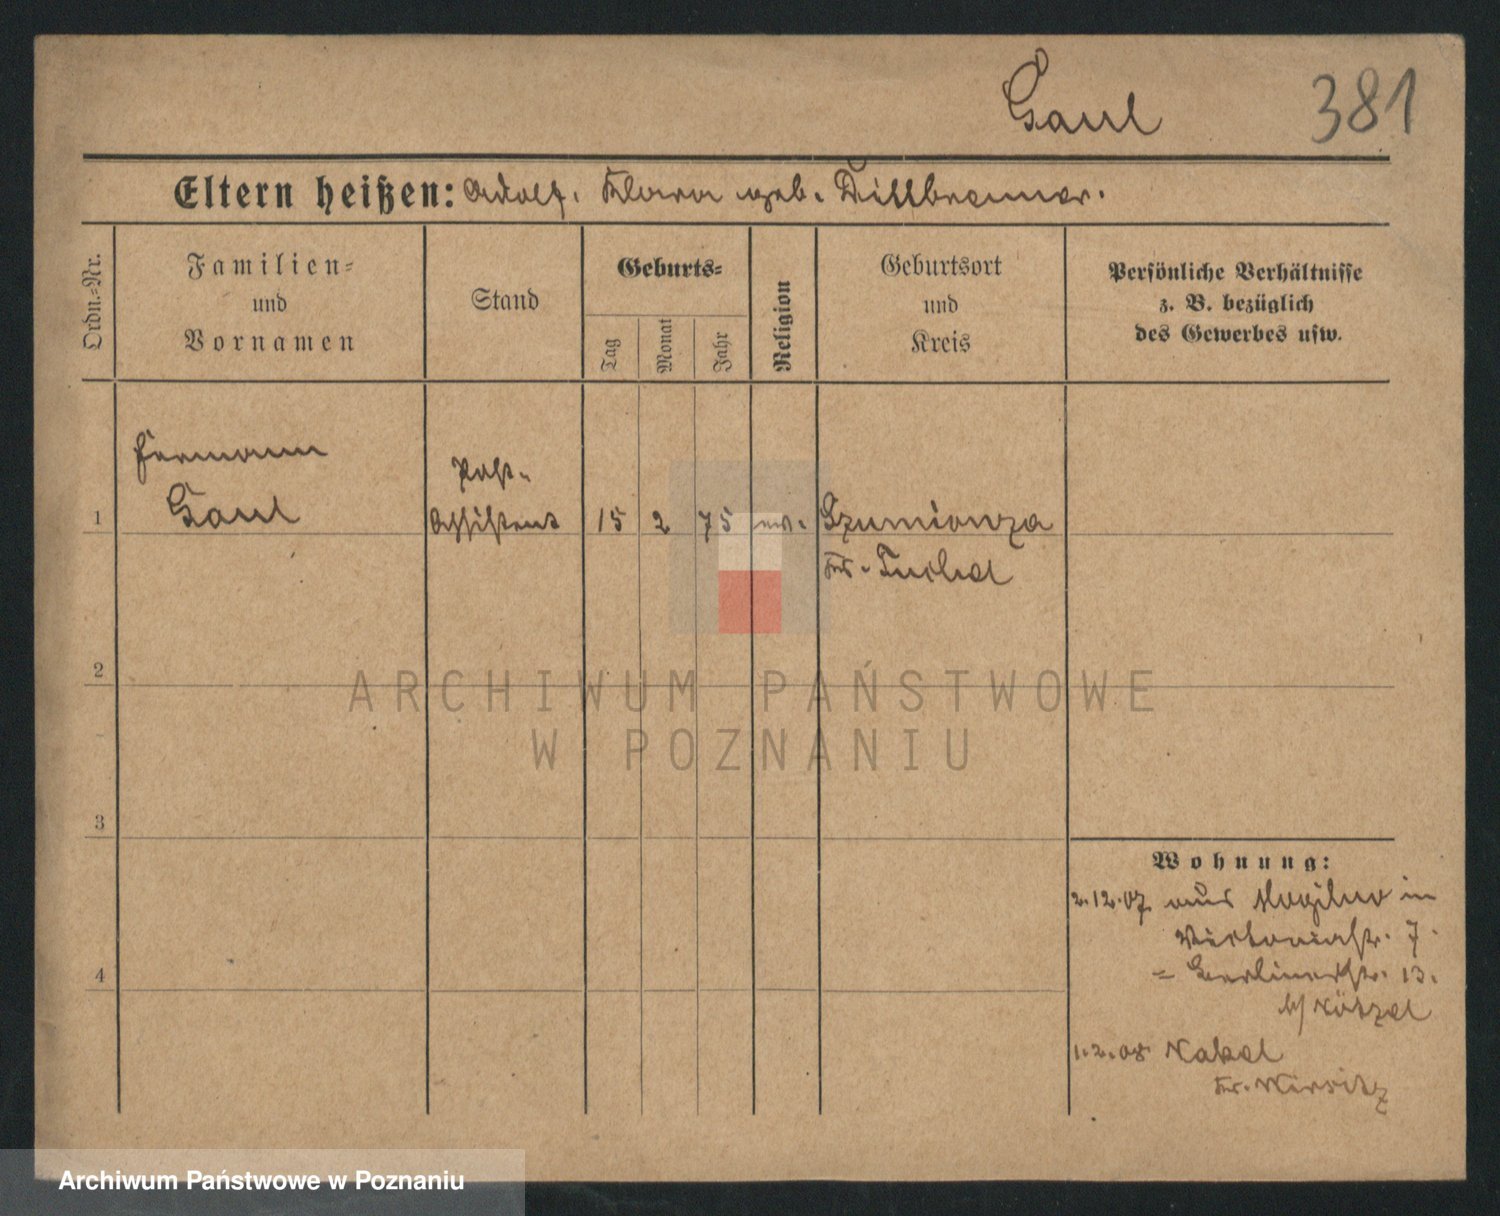 Gaul 381
Eltern heißen: Adolf. Klara geb. Dillbrenner.
Ordn.-Nr.
Familien-
und
Vornamen
Stand
Geburts-
Tag
Monat
Jahr
Religion
Geburtsort
und
Kreis
Persönliche Verhältnisse
z. B. bezüglich
des Gewerbes usw.
Hermann
Gaul
Post-
Assistent
1 15 2 75 ev.
Szumionza
Kr. Tuchel
2
3
4
ARCHIWUM PAŃSTWOWE
W POZNANIU
Wohnung:
2.12.07 aus Mogilno in
Victoriastr. 7.
= Berlinerstr. 13.
b/ Kötzel
1.2.08 Nakel
Kr. Wirsitz
Archiwum Państwowe w Poznaniu